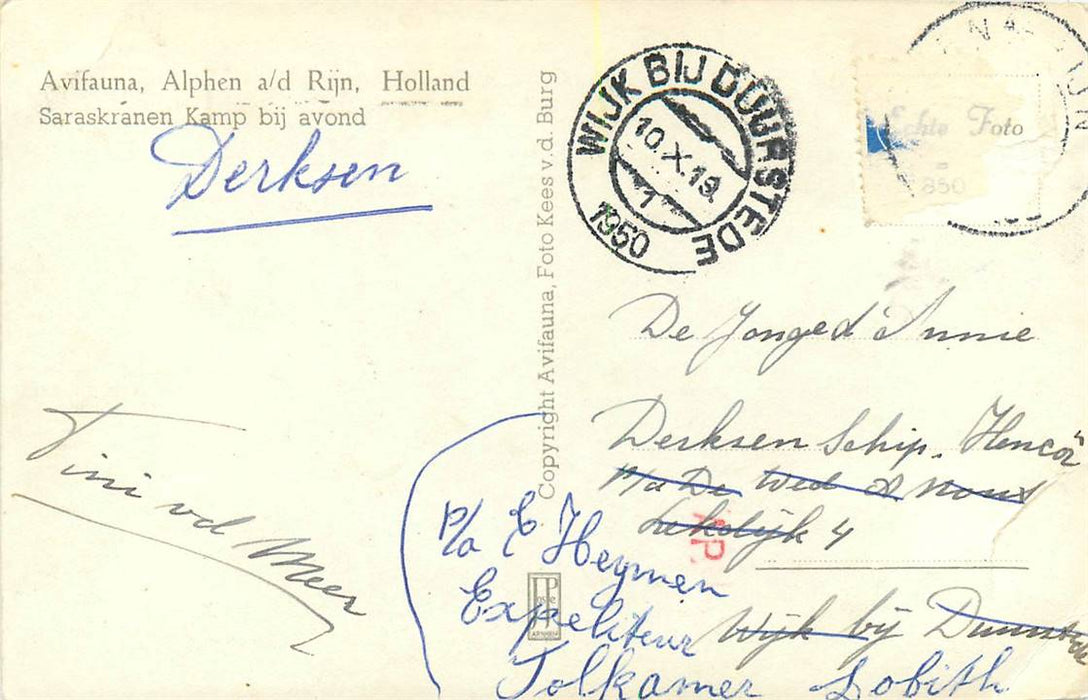 Avifauna, Alphen a/d Rijn, Holland
Saraskranen Kamp bij avond
Derksen
Tini vd Meer
Copyright Avifauna, Foto Kees v.d. Burg
WIJK BIJ DUURSTEDE
10.X.19
1
1950
Echte Foto
850
De Jonged Annie
Derksen Schip. "Hencor"
p/a De Wed
4
Wijk bij
p/a E Heymen
Expeliteur
Tolkamer Lobith